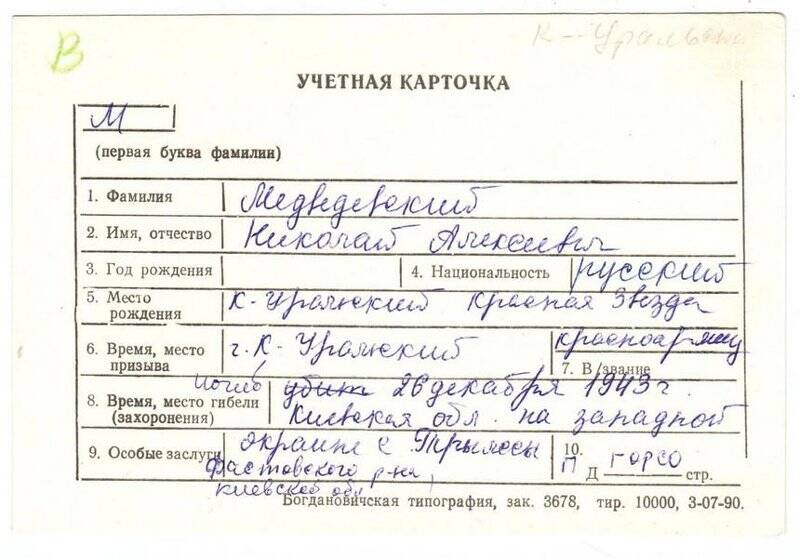 В
К-Уральский
УЧЕТНАЯ КАРТОЧКА
М
(первая буква фамилии)
1. Фамилия Медведевский
2. Имя, отчество Николай Алексеевич
3. Год рождения 4. Национальность русский
5. Место рождения К-Уральский Красная Звезда
6. Время, место призыва г. К-Уральский красноармеец
7. В/звание
погиб убит 26 декабря 1943 г.
8. Время, место гибели (захоронения) Киевская обл. на западной
9. Особые заслуги окраине с. Трылесы 10.
Фастовского р-на, П Д горсо стр.
киевской обл
Богдановичская типография, зак. 3678, тир. 10000, 3-07-90.